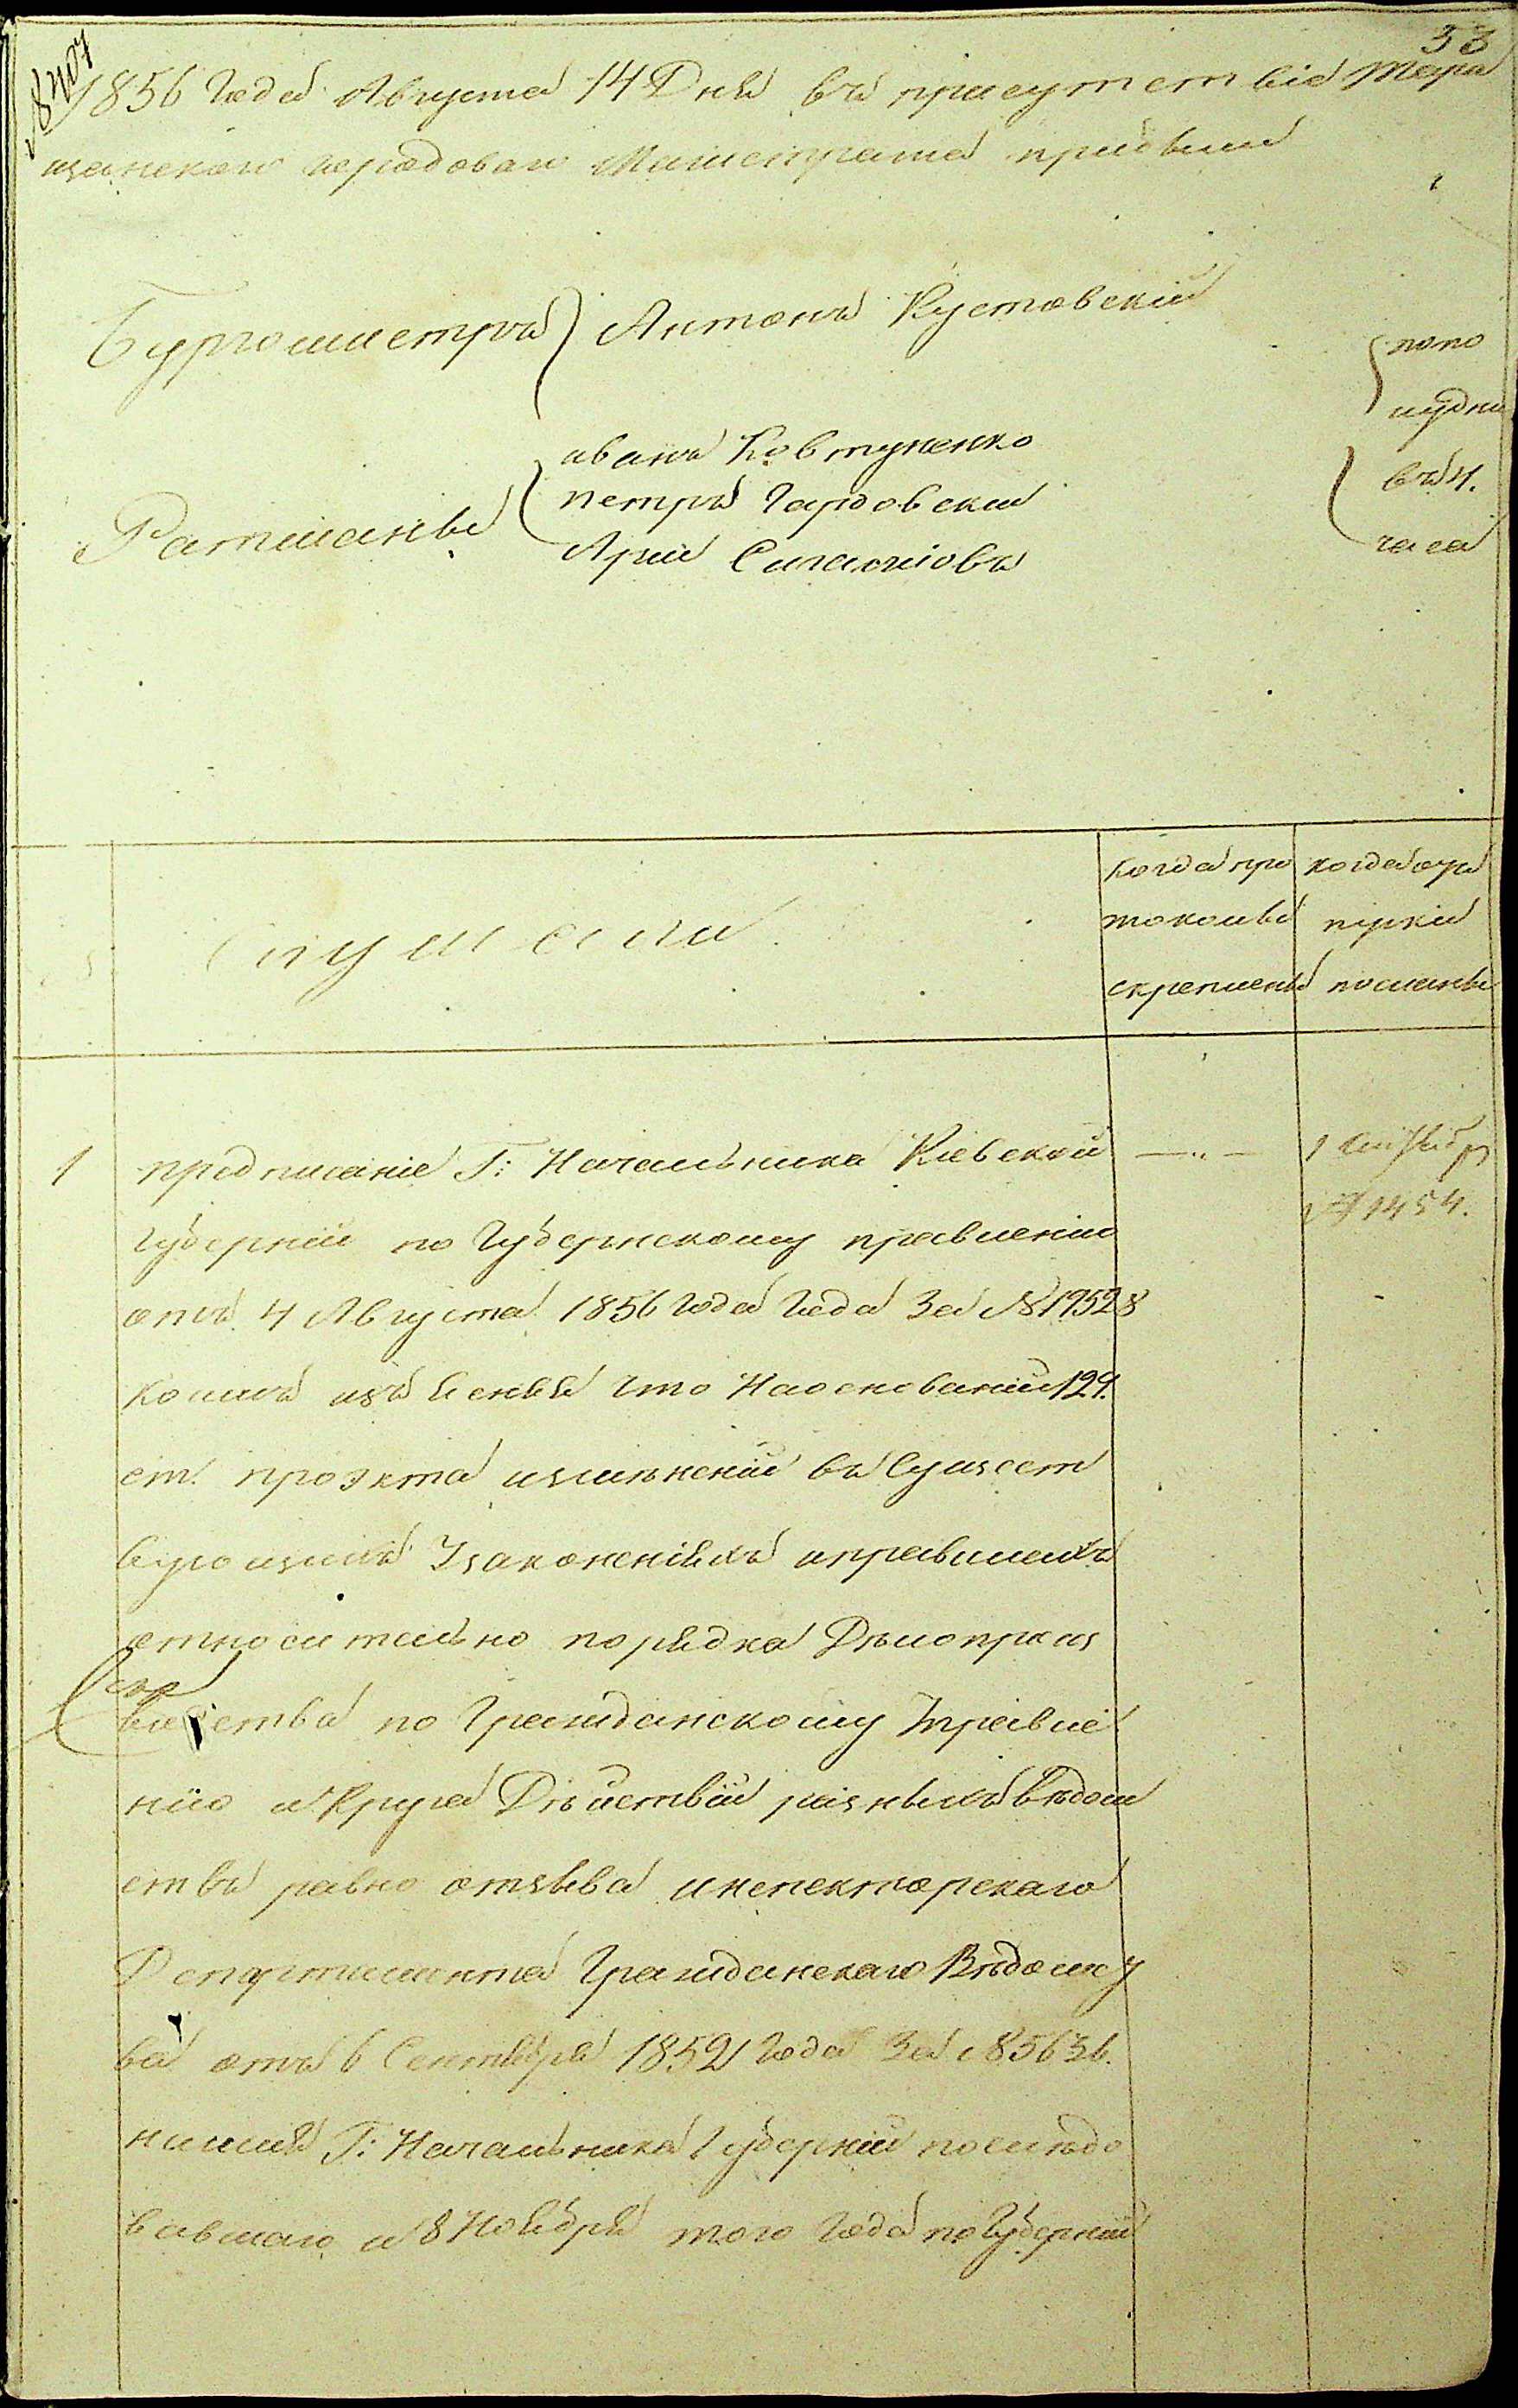 53
№ 407
1856 Года Августа 14 Дня въ присутствіе Тара
щанскаго городоваго Магистрата прибыли
Бургомистръ Антонъ Кустовскій
иванъ Ковтуненко
Ратманы петръ Гардовскій
Арій
попо
лудни
въ 4.
часа
Слушали
когда про
токолы
скреплены
когда отъ
пуски
посланы
1 предписаніе Г: Начальника Кіевской
губерніи по Губернскому правленію
отъ 4 Августа 1856 года Года За № 19528
коимъ изъяснья что На основаніи 129.
ст. проэкта измѣненій въ Сущест
вующихъ Узаконеніяхъ и правилахъ
относительно порядка Дѣлопроиз
водства по Гражданскому Управле
нію и Круга Дѣйствій разныхъ Вѣдом
ствъ равно отзыва инспекторскаго
Департамента Гражданскаго Вѣдомс
ва отъ 6 Сентября 1852 года За № 5636.
Г: Начальника Губерніи послѣдо
вавшаго и 8 Ноября того Года по Губерніи
1 Сентября
№ 1454.